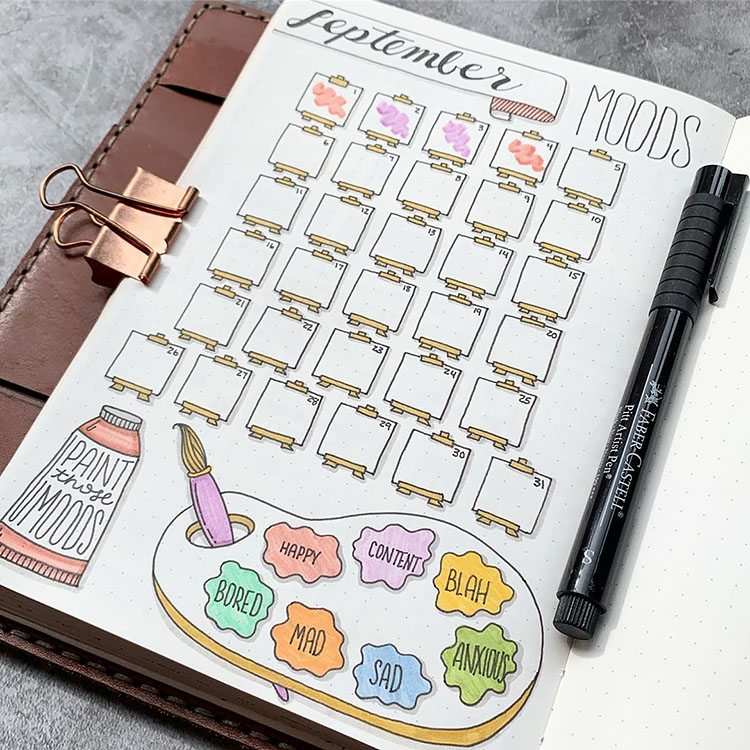 September
MOODS
1 2 3 4 5
6 7 8 9 10
11 12 13 14 15
16 17 18 19 20
21 22 23 24 25
26 27 28 29 30 31
PAINT
those
MOODS
HAPPY
CONTENT
BLAH
BORED
MAD
SAD
ANXIOUS
FABER-CASTELL
Pitt Artist Pen®
S